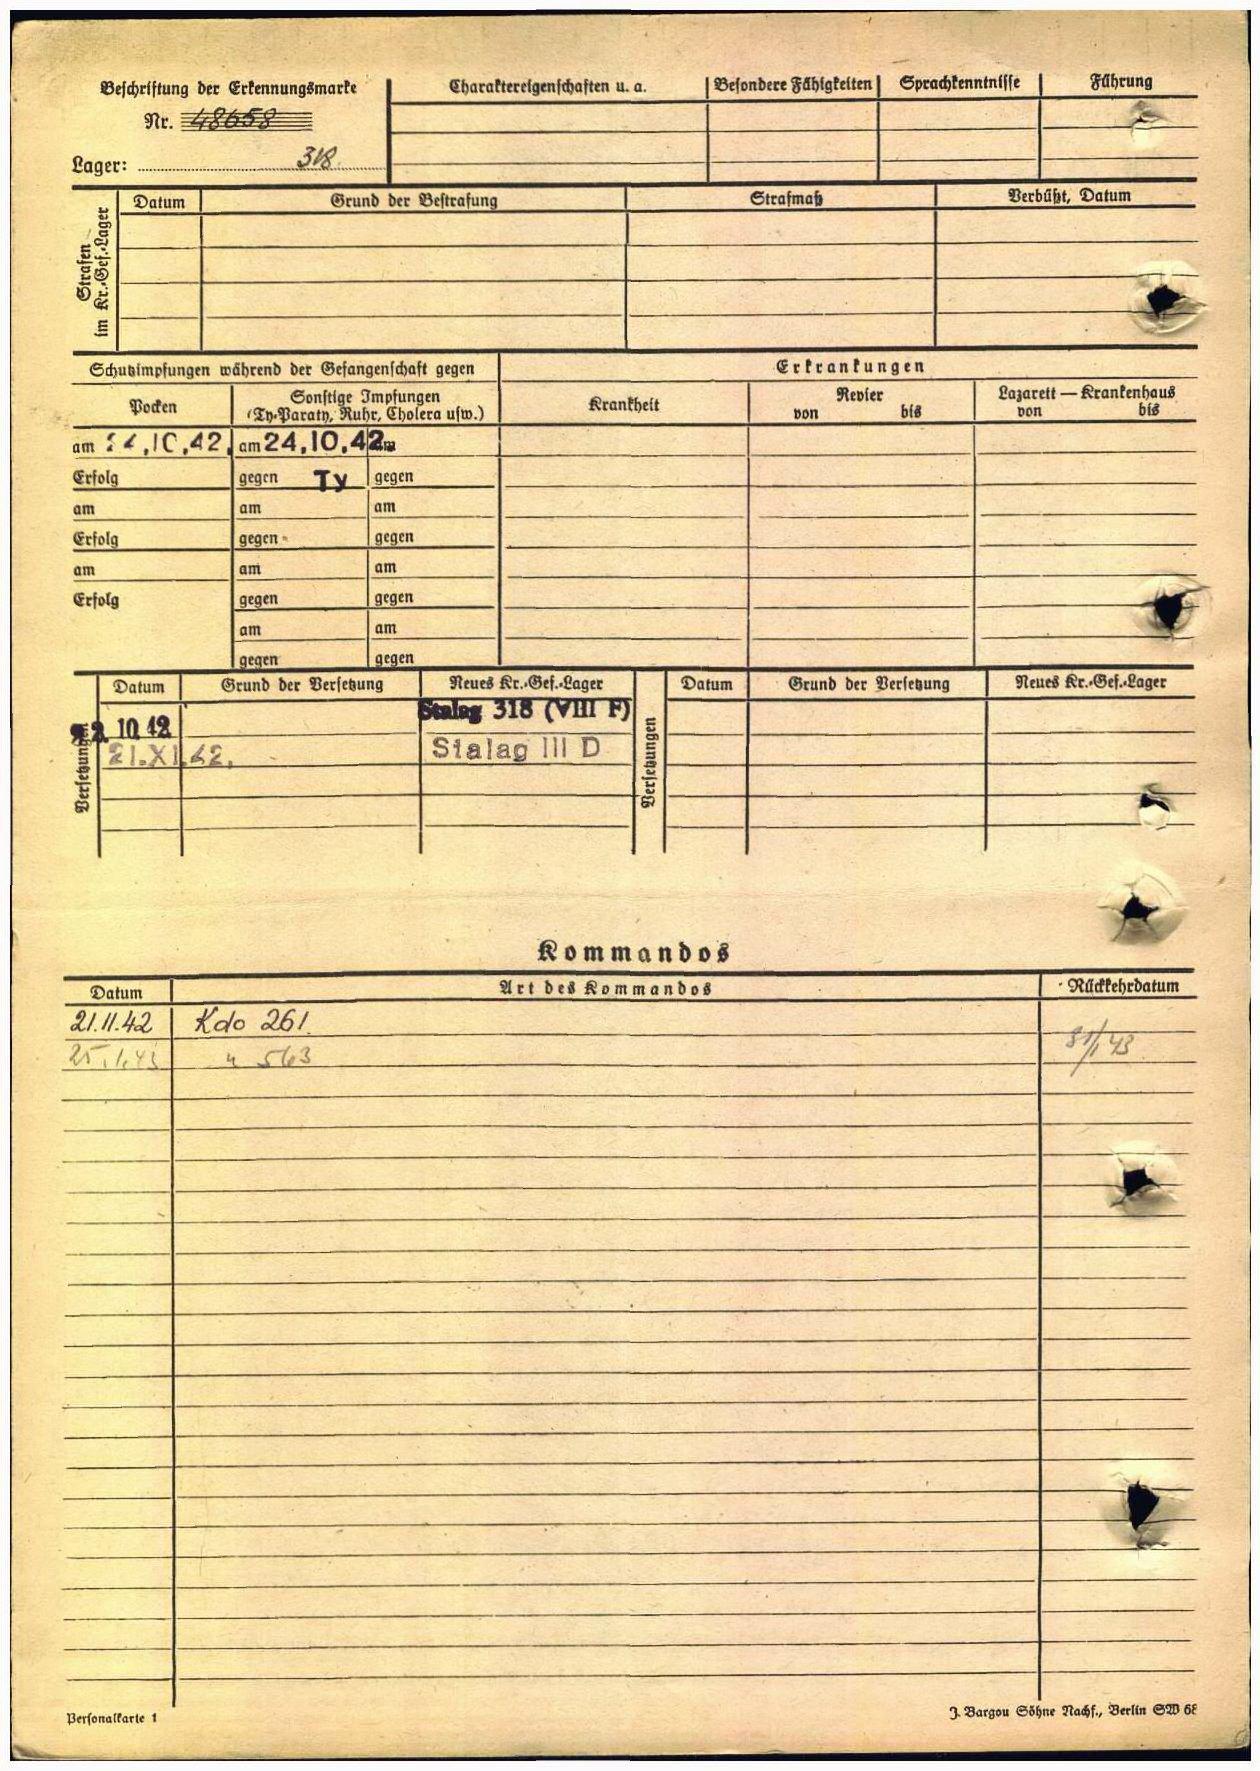 Beschriftung der Erkennungsmarke
Nr. 48658
Lager: 318
Charaktereigenschaften u. a.
Besondere Fähigkeiten
Sprachkenntnisse
Führung
Strafen
im Kr.-Gef.-Lager
Datum
Grund der Bestrafung
Strafmaß
Verbüßt, Datum
Schutzimpfungen während der Gefangenschaft gegen
Erkrankungen
Pocken
Sonstige Impfungen
(Ty-Paraty, Ruhr, Cholera usw.)
Krankheit
Revier
von bis
Lazarett — Krankenhaus
von bis
am 24.10.42. am 24.10.42 am
Erfolg gegen Ty gegen
am am am
Erfolg gegen gegen
am am am
Erfolg gegen gegen
am am
gegen gegen
Versetzungen
Datum Grund der Versetzung Neues Kr.-Gef.-Lager
10.42 Stalag 318 (VIII F)
21.XI.42. Stalag III D
Versetzungen
Datum Grund der Versetzung Neues Kr.-Gef.-Lager
Kommandos
Datum Art des Kommandos Rückkehrdatum
21.11.42 Kdo 261.
25.1.43 " 563 31/1 43
Personalkarte 1
J. Bargou Söhne Nachf., Berlin SW 68